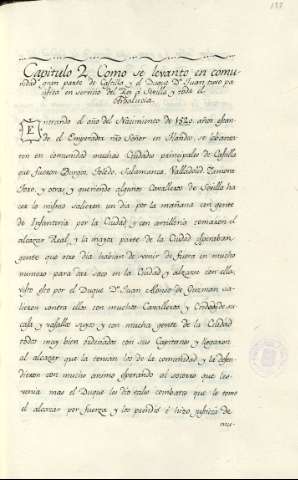 Capitulo 2. Como se levanto en comu-
nidad gran parte de Castilla y el Duque Dn. Juan tuvo pa-
cifica en servicio del Rei a Sevilla y toda el
Andalucia.
Entrando el año del Nacimiento de 1520. años estan-
do el Emperador nro Señor en Flandes, se levanta-
ron en comunidad muchas Ciudades principales de Castilla
que fueron Burgos, Toledo, Salamanca, Valladolid, Zamora
Toro, y otras, y queriendo algunos Cavalleros de Sevilla ha-
cer lo mismo salieron un dia por la mañana con gente
de Infanteria por la Ciudad, y con artilleria tomaron el
alcazar Real, y la mayor parte de la Ciudad esperaban
gente que ese dia habian de venir de fuera en mucho
numero para dar saco en la Ciudad y alzarse con ella,
visto esto por el Duque Dn. Juan Alonso de Guzman sa-
lieron contra ellos con muchos Cavalleros y Criados de su
casa y vasallos suyos y con mucha gente de la Ciudad
todos muy bien ordenados con sus Capitanes y llegaron
al alcazar que la tenian los de la comunidad, y la defen-
dieron con mucho animo esperando al socorro que les
venia mas el Duque les dio tales combates que le tomo
el alcazar por fuerza y los prendió é hizo justicia de
mu-